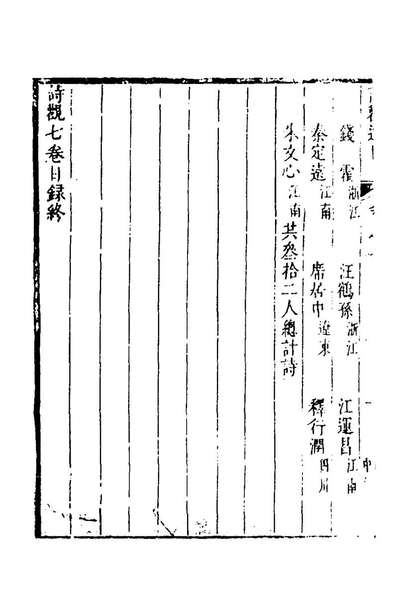 錢霍浙江　汪鶴孫浙江　江運昌江南
秦定遠江南　席居中遼東　釋行潤四川
朱文心江南共叄拾二人總計詩
詩觀七卷目録終